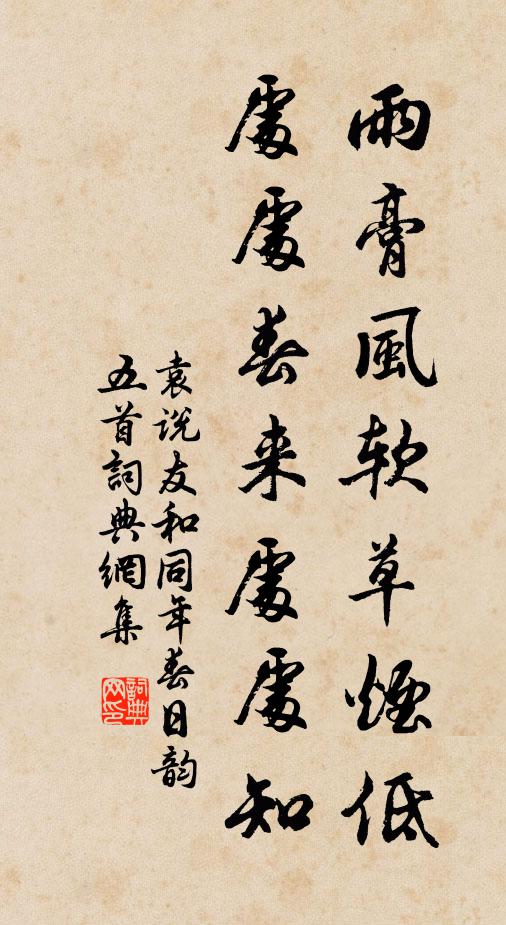 雨膏風软草煙低
處處春来處處知
袁说友和同年春日韵
五首詞典網集
詞典网印